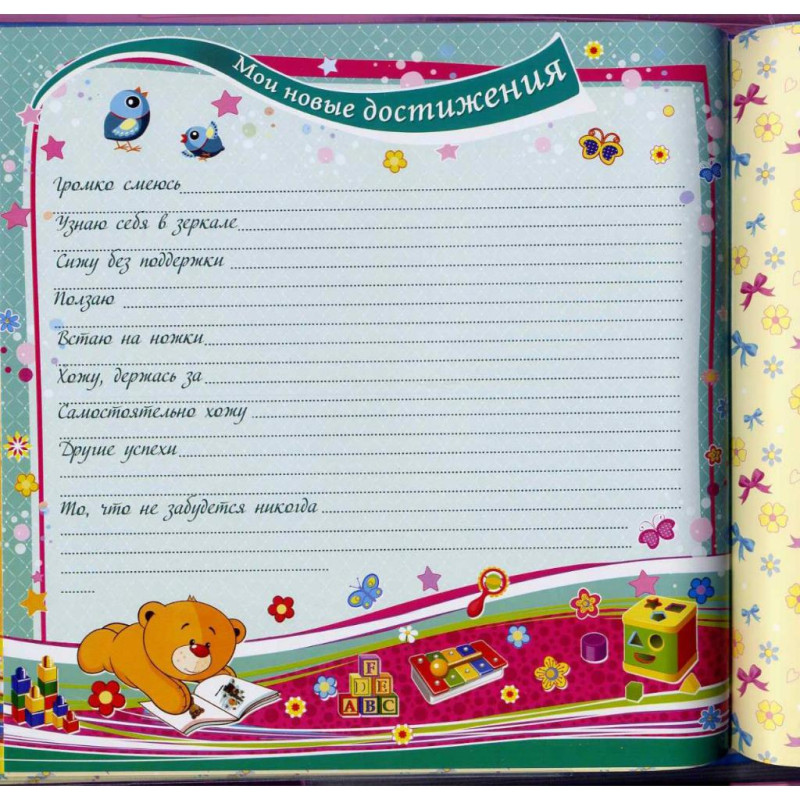 Мои новые достижения
Громко смеюсь
Узнаю себя в зеркале
Сижу без поддержки
Ползаю
Встаю на ножки
Хожу, держась за
Самостоятельно хожу
Другие успехи
То, что не забудется никогда
F
D E
A B C